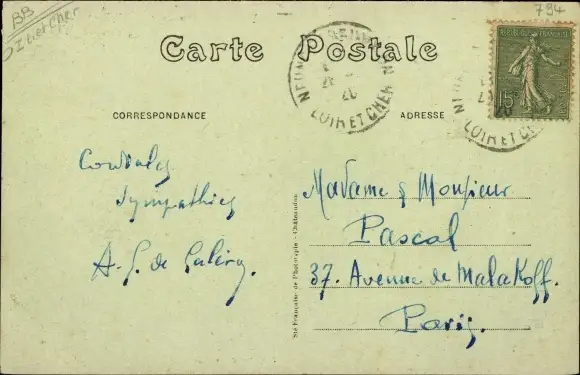 BB
Loir et Cher
794
Carte Postale
REPUBLIQUE FRANÇAISE
15c
LOIR ET CHER
LOIR ET CHER
CORRESPONDANCE
ADRESSE
Cordiales
Sympathies
Madame & Monsieur
Pascal
37. Avenue de Malakoff.
Paris.
Sté Française de Phototypie - Châteaudun